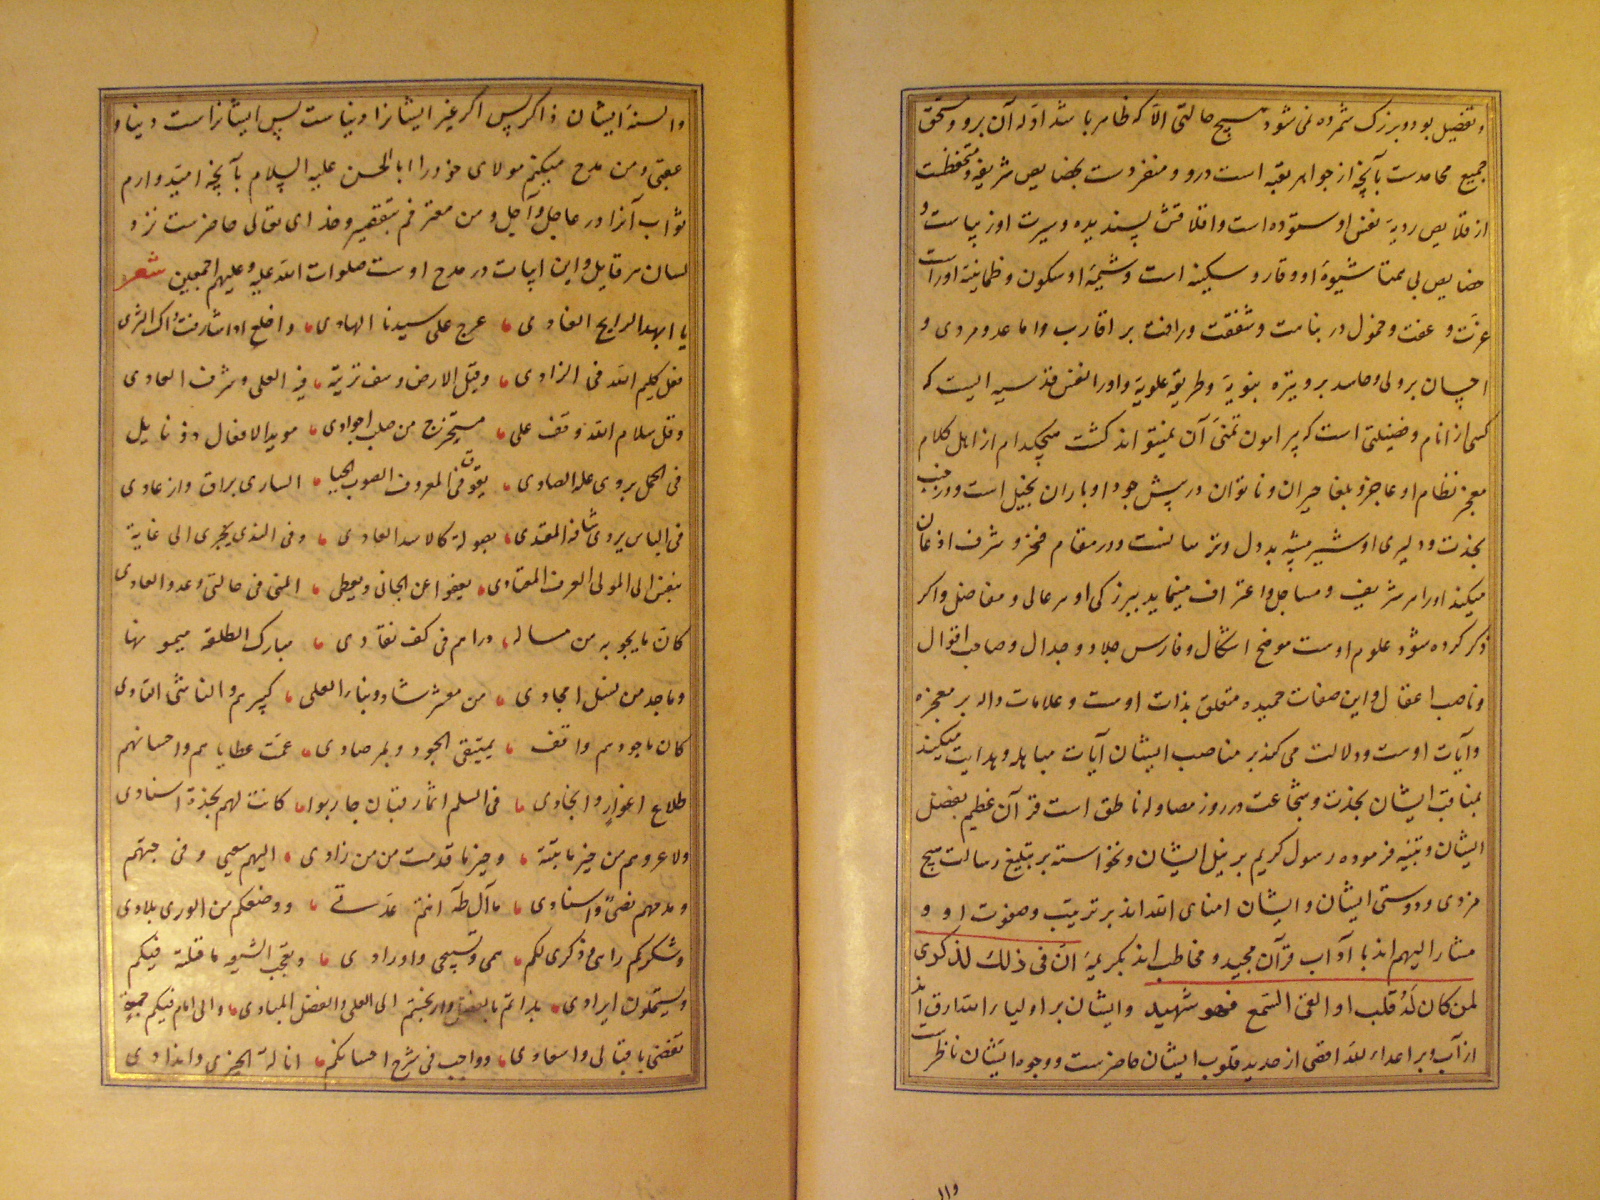 و تفضیل بود و بزرک شمرده نمی شود هیچ حالتی الا که ظاهر باشد ادله آن برو و مستحق
جمیع محامدست بآنچه از جواهر بقیه است درو و منفردست بخصایص شریفه و متحفظست
از نقایص ردیه نفس او ستوده است و اخلاقش پسندیده و سیرت او زیباست و
خصایص بی همتا شیوه او وقار و سکینه است و شیمه او سکون و طمانینه اوراست
عزت و عفت و خمول در بنامت و شفقت و رافت بر اقارب و اباعد و مردی و
احسان بر ولی و حاسد بر وتیره نبویة و طریقه علویة و اورا نفس قدسیه ایست که
کسی از انام و فضیلتی است که پیرامون تمنی آن نمیتواند کشت هیچکدام از اهل کلام
معجز نظام او عاجز و بلغا حیران و ناتوان در پیش جود او باران بخیل است و در جنب
نجدت و دلیری او شیر بیشه بد دل و ترسانست و در مقام فخر و شرف اذعان
میکنند اورا هر شریف و مساجل و اعتراف مینماید ببزرکی او هر عالی و مفاضل و اکر
ذکر کرده شود علوم اوست موضح اشکال و فارس جلاد و جدال و صاحب اقوال
و ناصب اعقال و این صفات حمیده متعلق بذات اوست و علامات داله بر معجزه
و آیات اوست و دلالت می کند بر مناصب ایشان آیات مباهله و هدایت میکند
بمناقب ایشان نجدت و شجاعت در روز مصاوله ناطق است قرآن عظیم بفضل
ایشان و تنبیه فرموده رسول کریم بر نبل ایشان و نخواسته بر تبلیغ رسالت هیچ
مزدی و دوستی ایشان و ایشان امنای الله اند بر ترتیب و صفوت او و
مشار الیهم اند با آداب قرآن مجید و مخاطب اند بکریمه ان فی ذلک لذکری
لمن کان له قلب او القی السمع فهو شهید و ایشان بر اولیاء الله ارق اند
از آب و بر اعداء لله اقصی از حدید قلوب ایشان حاضرست و وجوه ایشان ناظرست
والسنه ایشان ذاکر پس اکر غیر ایشانرا دنیاست پس ایشانراست دنیا و
عقبی و من مدح میکنم مولای خود را ابا الحسن علیه السلام بآنچه امیدوارم
ثواب آنرا در عاجل و آجل و من معترفم بتقصیر و خدای تعالی حاضرست نزد
لسان هر قایل و این ابیات در مدح اوست صلوات الله علیه و علیهم اجمعین شعر
یا ایهذا الرایح الغادی عرج علی سیدنا الهادی واخلع اذا شارفت ذاک الثری
فعل کلیم الله فی الوادی وقبل الارض وسف تربة فیه العلی وشرف العادی
وقل سلام الله وقف علی مستخرج من صلب اجوادی موید الافعال ذو نایل
فی المحل یروی غلة الصادی یفوق فی المعروف صوب الحیا الساری بابراق وارعادی
فی الباس یردی شافة المعتدی بصولة کالاسد العادی وفی الندی یجری الی غایة
بنفس مولی العرف المعتادی یعفو عن الجانی ویعطی المنی فی حالتی وعد وایعادی
کان ما یحویه من ماله دراهم فی کف نقادی مبارک الطلعة میمونها
وماجد من نسل امجادی من معشر شادوا بناء العلی کبیرهم والناشی الشادی
کان ما جودهم واقف یستبقی الجود بمرصادی عمت عطایاهم واحسانهم
طلاع اغوار وانجادی فی السلم اقمار وان حاربوا کانت لهم نجدة اسادی
ولاءهم من خیر ما نلته وخیر ما قدمت من زادی الیهم سعیی وفی حبهم
ومدحهم نصی واسنادی یا آل طه انتم عدتی ووصفکم بین الوری بلادی
وشکرکم دابی وذکری لکم همی وتسبیحی واورادی ویعجب الشیعة ما قلته فیکم
ویستحلون ایرادی بداتم بالفضل وارتحتم الی العلی والفضل المبادی ولی امام فیکم جمة
تقضی باقبالی واسعادی وواجب فی شرع احسانکم انالة الخیر وامدادی